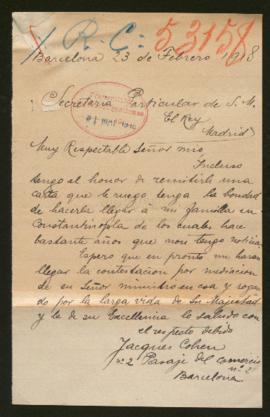 R. C: 53158
Barcelona 23 de Febrero 1918
Secretaria Particular de S. M.
El Rey
Madrid
Muy Respectable Señor mio
Incluso
tengo el honor de remitirle una
carta que le ruego tenga la bondad
de hacerla lleger à mi familia en
Constantinopla de los cuales hace
bastante años que non tengo noticia
Espero que en pronto me haran
llegar la contestacion por mediacion
de su Señor ministro en esa y rogan
do por la larga vida de Su Majestad
y la de su Excellencia le saludo con
el respecto debido
Jacques Cohen
nº2 Pasaje del Comercio
nº2
Barcelona